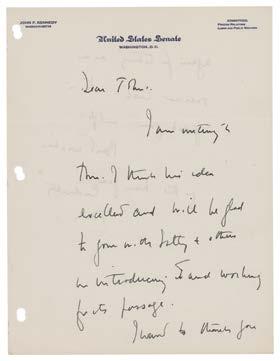 JOHN F. KENNEDY
MASSACHUSETTS
United States Senate
WASHINGTON, D.C.
COMMITTEES:
FOREIGN RELATIONS
LABOR AND PUBLIC WELFARE
Dear
I am writing to
I think his idea
excellent and will be glad
to join with & others
in introducing & and working
for its passage.
I want to thank you